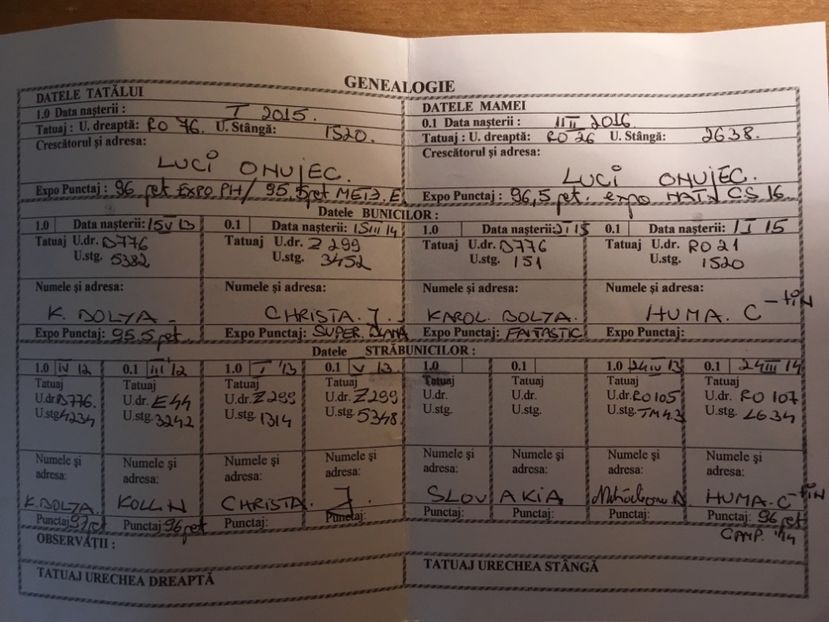 GENEALOGIE
DATELE TATĂLUI
1.0 Data naşterii : I 2015.
Tatuaj : U. dreaptă: RO 76. U. Stângă: 1520.
Crescătorul şi adresa:
LUCI ONUJEC.
Expo Punctaj : 96 pct EXPO PH/ 95,5pct
DATELE MAMEI
0.1 Data naşterii : III 2016.
Tatuaj : U. dreaptă: RO 26 U. Stângă: 2638.
Crescătorul şi adresa:
LUCI ONUJEC.
Expo Punctaj : 96,5 pct. expo CS 16
Datele BUNICILOR :
1.0 Data naşterii: 15V 13 0.1 Data naşterii: 15III 14 1.0 Data naşterii: 15 0.1 Data naşterii: 1 I 15
Tatuaj U.dr. D776 Tatuaj U.dr. Z 299 Tatuaj U.dr. D776 Tatuaj U.dr. RO 21
U.stg. 5382 U.stg. 3452 U.stg. 151 U.stg. 1520
Numele şi adresa: Numele şi adresa: Numele şi adresa: Numele şi adresa:
K. BOLYA. CHRISTA. J. KAROL. BOLYA. HUMA. C-tin
Expo Punctaj: 95.5 pct. Expo Punctaj: SUPER. Expo Punctaj: FANTASTIC Expo Punctaj:
Datele STRĂBUNICILOR :
1.0 IV 12 0.1 III '12 1.0 I '13 0.1 V 13. 1.0 0.1 1.0 24IV 13 0.1 24III 14
Tatuaj Tatuaj Tatuaj Tatuaj Tatuaj Tatuaj Tatuaj Tatuaj
U.dr D776. U.dr. E44 U.dr. Z299 U.dr. Z299 U.dr. U.dr. U.dr. RO105 U.dr. RO 107
U.stg. 4234 U.stg. 3242 U.stg. 1314 U.stg. 5348 U.stg. U.stg. U.stg. TM43 U.stg. LG34
Numele şi adresa: Numele şi adresa: Numele şi adresa: Numele şi adresa: Numele şi adresa: Numele şi adresa: Numele şi adresa: Numele şi adresa:
K.BOLYA. KOLLN CHRISTA. J. SLOVAKIA HUMA. C-tin
Punctaj 97pct Punctaj 96 pct Punctaj: Punctaj: Punctaj: Punctaj: Punctaj: Punctaj: 96 pct
CAMP. '14
OBSERVAŢII :
TATUAJ URECHEA DREAPTĂ
TATUAJ URECHEA STÂNGĂ